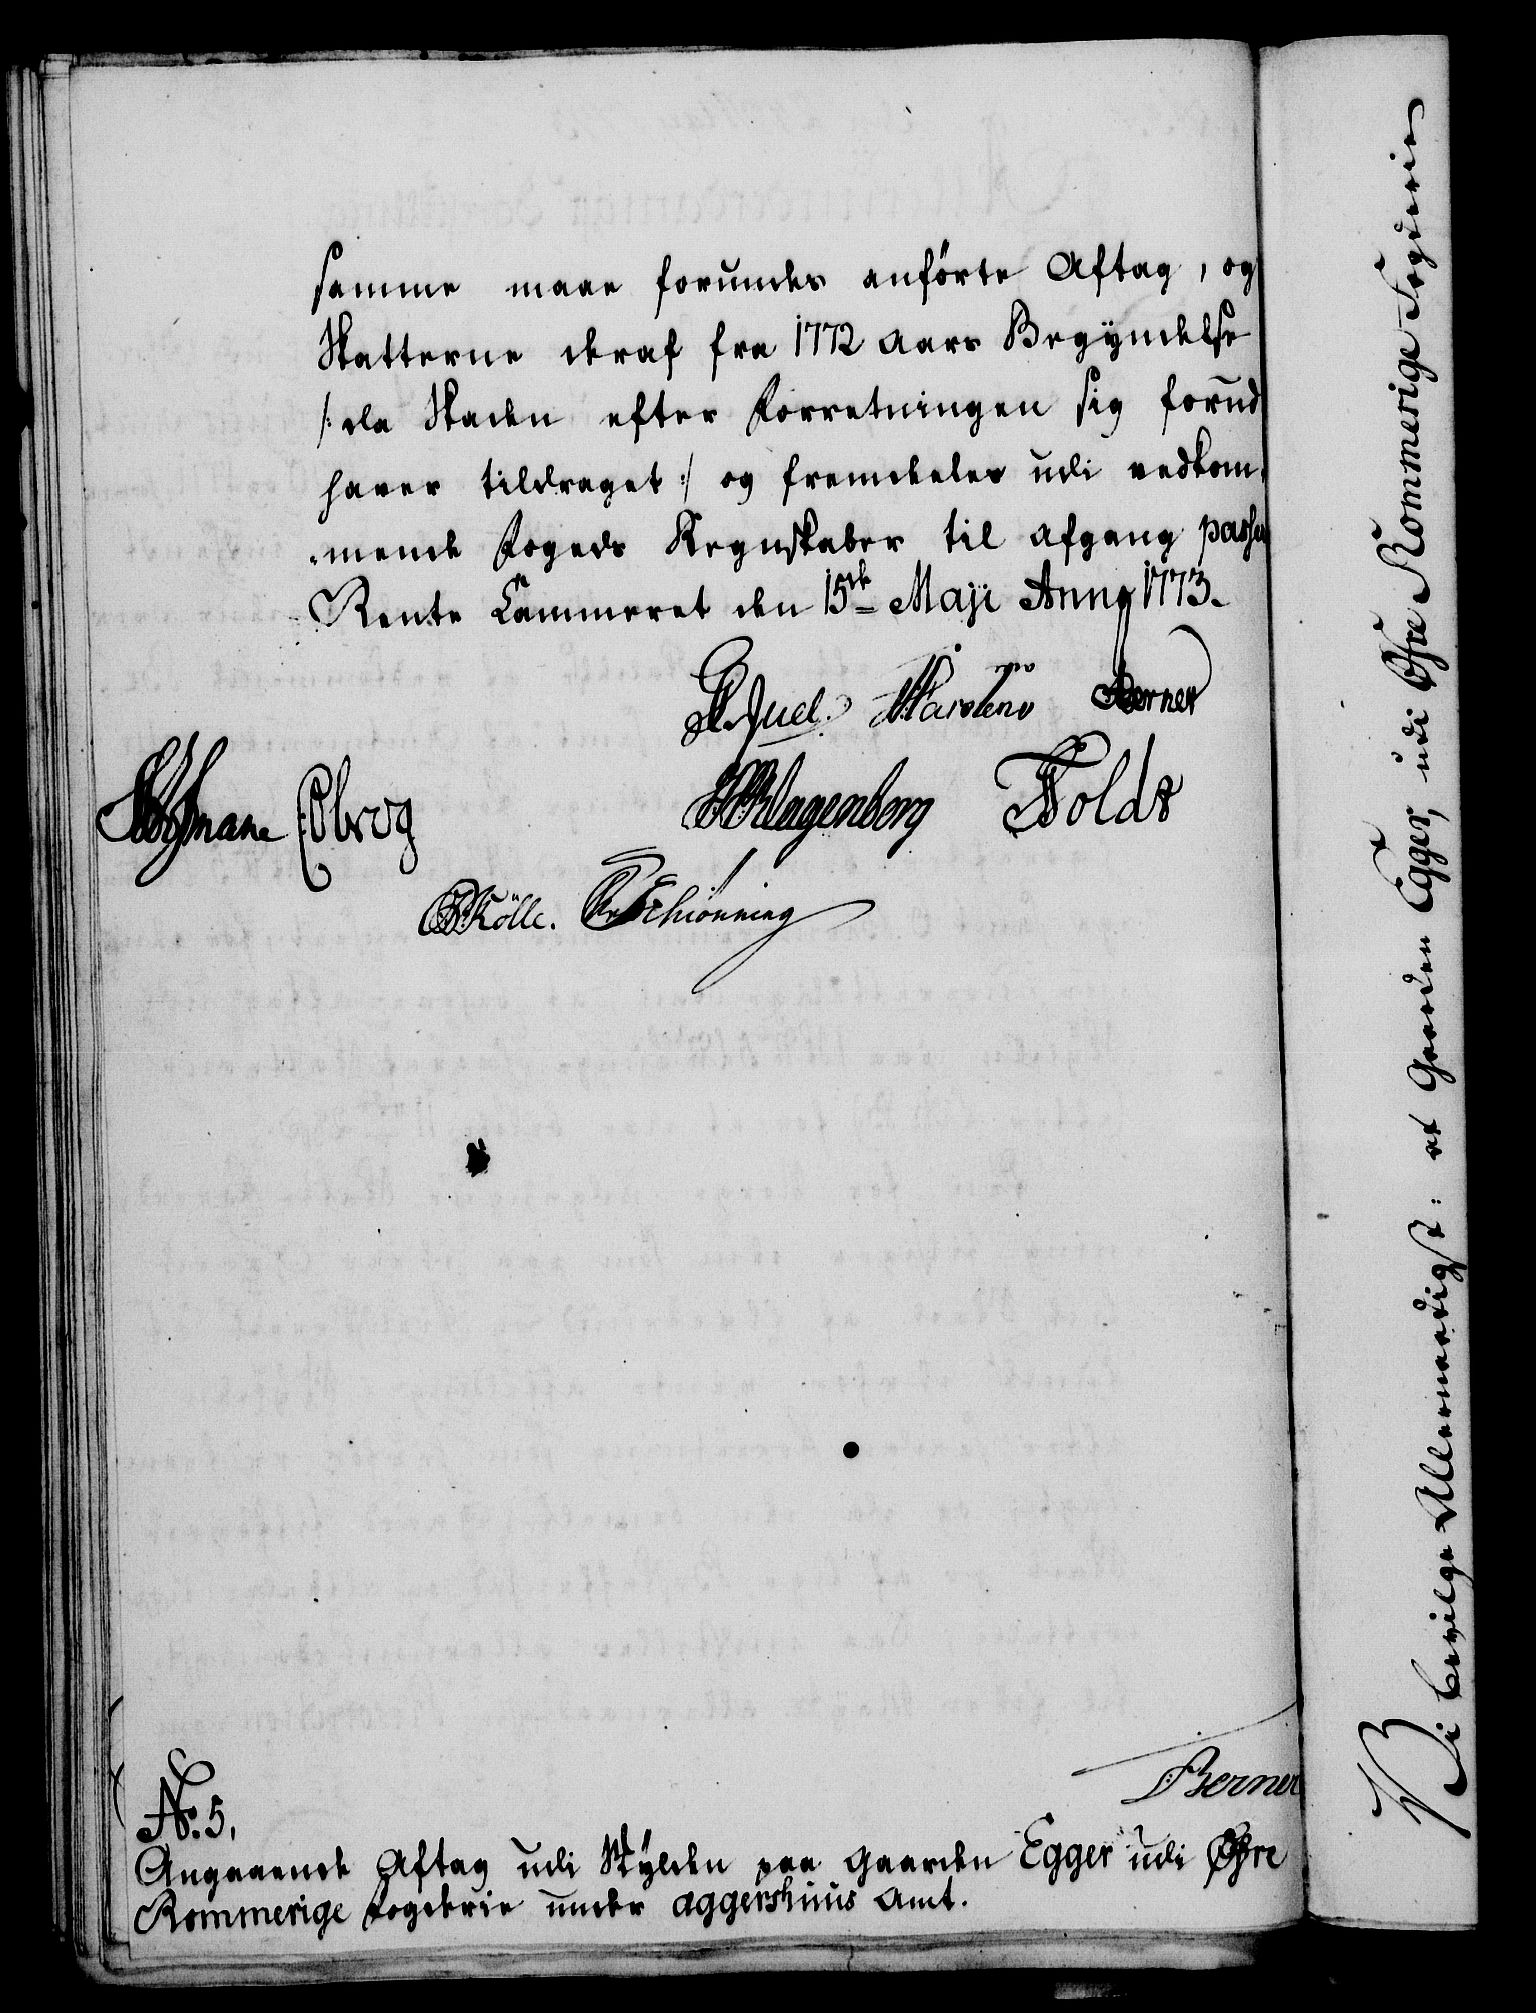 samme maae forundes anförte Aftag, og
Skatterne deraf fra 1772 Aars Begÿndelse
/: da Skaden efter Forretningen sig forud
haver tildraget :/ og fremdeeles udi vedkom-
mende Fogeds Regnskaber til afgang passe
Rente Cammeret den 15de Maji Anno 1773.
Juel. Berner
Klagenberg
Schiönning
Berner
No. 5.
Angaaende Aftag udi Skÿlden paa Gaarden Egger udi Øfre
Rommerige Fogderie under Aggershuus Amt.
Vi bevilge Allernaadigst: at Gaarden Egger, udi Øfre Rommerige Fogderie